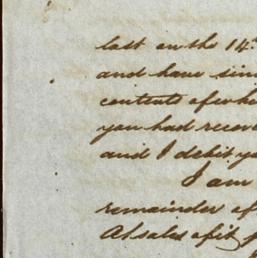 last on the 14th
and have sin
contents of wh
you had recei
and I debit yo
I am
remainder of
At sales of it